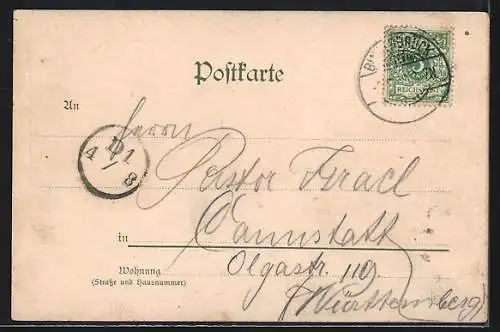 Postkarte
An
Herrn
Pastor Israel
in Cannstatt
Olgastr. 119.
Wohnung
(Straße und Hausnummer)
(Württemberg)
D 1
4/8
5
REICHSPOST